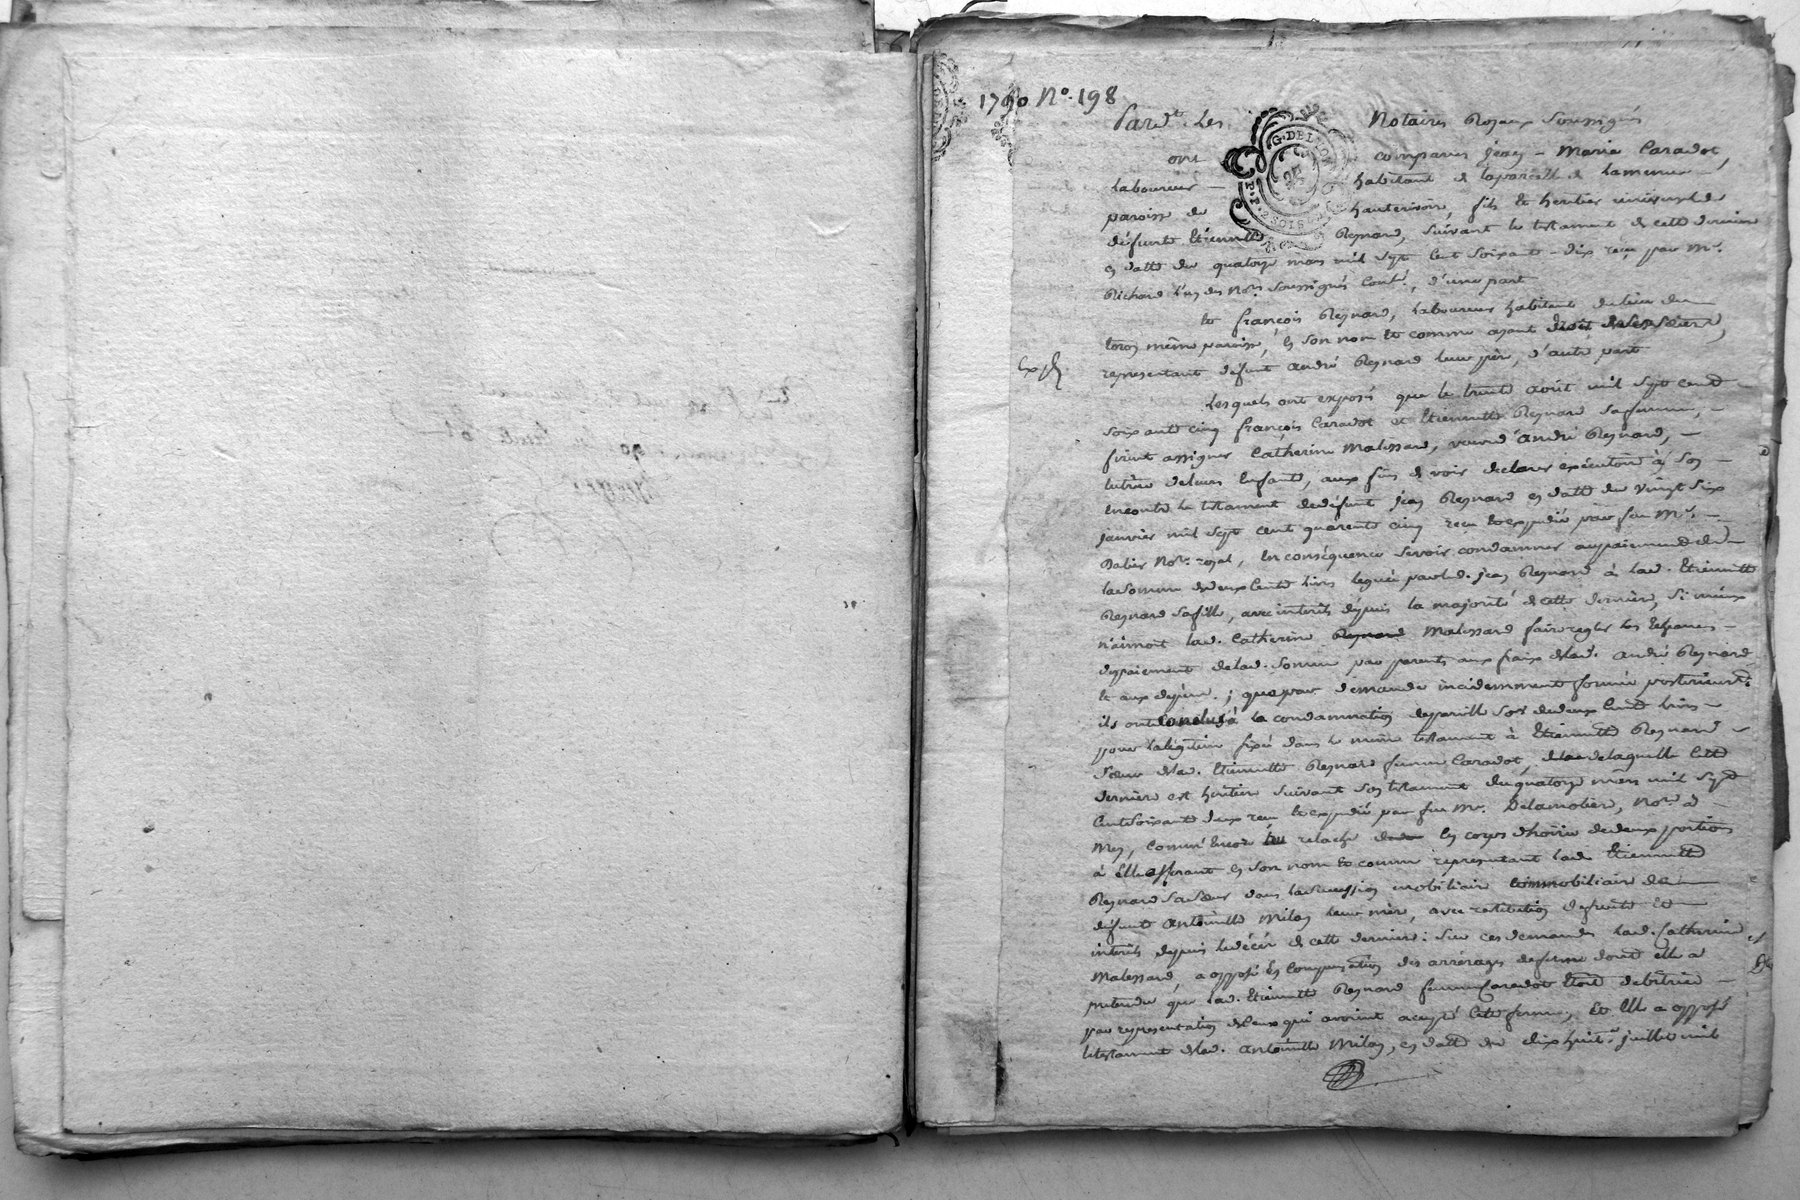 1790 N°. 198
Pard.t Les Notaires Royaux Soussignés
G. DE LYON
P. P. 2 SOLS
ont comparu jean-Marie Caradot,
Laboureur habitant de la parcelle de Lamure
paroisse de hauterivoire, fils et heritier universel de
défunte Etiennette Reynard, suivant le testament de cette derniere
en datte du quatorze mars mil sept cent soixante-dix reçu par Me.
Richard l'un des No.res Soussignés Cont.é, d'une part
Et françois Reynard, Laboureur habitant du lieu du
même paroisse, en son nom et comme ayant droit de ses sœurs,
representant défunt andré Reynard leur père, d'autre part
Exp.é
Lesquels ont exposés que le trente août mil sept cent
soixante cinq françois Caradot et Etiennette Reynard sa femme,
firent assigner Catherine Malessard, veuve d'andré Reynard,
tutrice de leurs Enfants, aux fins de voir declarer exécutoire à son
encontre le testament de défunt jean Reynard en datte du vingt six
janvier mil sept cent quarante cinq reçu et expedié par feu Me.
Dalier No.re royal, En conséquence se voir condamner au paiement de
la somme de deux Cents livres leguée par led. jean Reynard à lad. Etiennette
Reynard sa fille, avec interets depuis la majorité de cette derniere, si mieux
n'aimoit lad. Catherine Reynard Malessard faire regler les termes
de paiement de lad. somme par parents aux fraix dud. andré Reynard
et aux depens; que par demande incidemment formée posterieurem.t
ils ont conclus à la condamnation de pareille so.e de deux Cents livres
pour la légitime fixée dans le même testament à Etiennette Reynard
sœur de lad. Etiennette Reynard femme Caradot, de laquelle Cette
derniere est heritiere suivant son testament du quatorze mars mil sept
Cent soixante deux reçu et expedié par feu Me. Delamotiere, No.re à
Mey, comm'encore relache en corps d'hoirie de deux portions
à Elle afferant en son nom et comme representant lad. Etiennette
Reynard sa sœur dans la succession mobiliaire et immobiliaire de
défunte antoinette Milon leur mère, avec restitution de fruits et
interets depuis le décès de cette derniere: Sur ces demandes lad. Catherine
Malessard, a opposé En Compensation des arrérages de ferme dont elle a
pretendu que lad. Etiennette Reynard femme Caradot étoit debitrice
par representation de Ceux qui avoient accepté Cette ferme, Et Elle a opposé
le testament de lad. antoinette Milon, en datte du dix huit. juillet mil